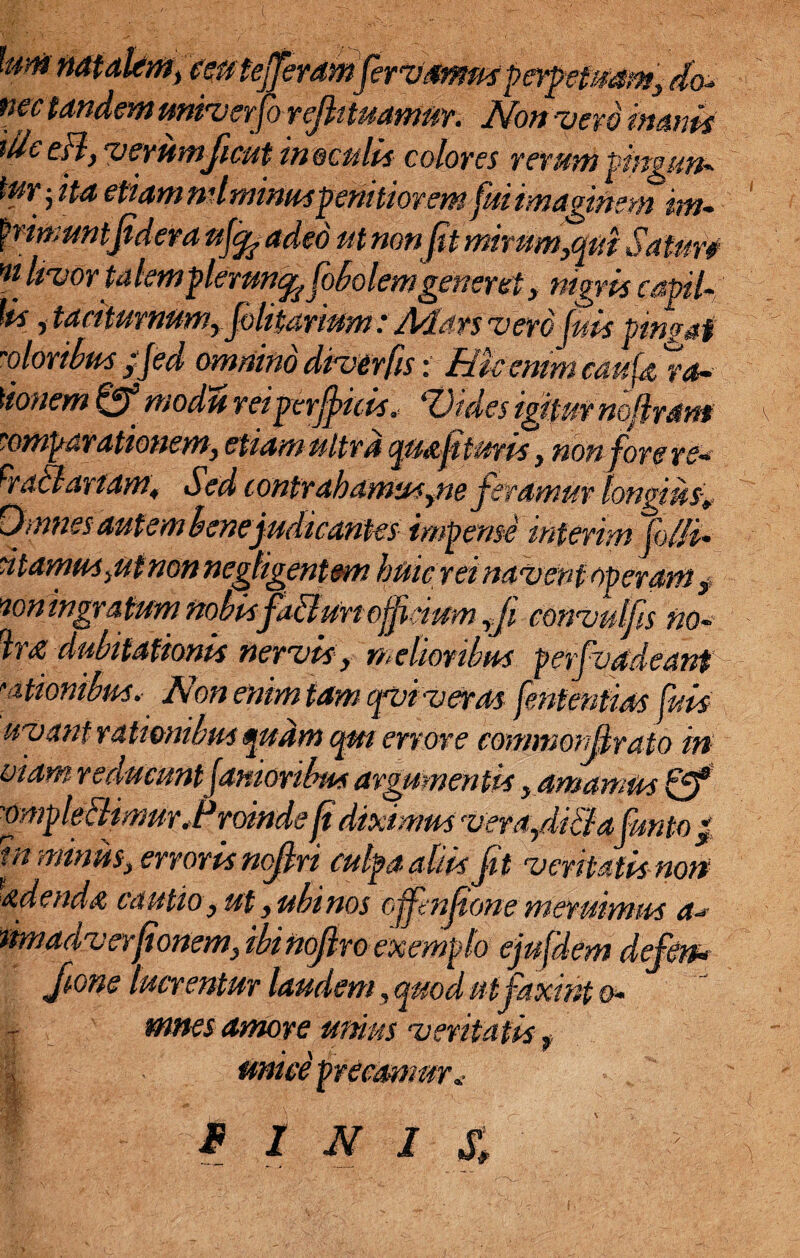 lum natalem, ceu tesseram servamus perpetuam, do-
nec tandem universo restituamur. Non vero inanis
ille est, verùm sicut in oculis colores rerum pingun-
tur; ita etiam nil minus penitiorem sui imaginem im-
primunt sidera usq; adeò ut non sit mirum, qui Saturni
livor talem plerunq; sobolem generet, nigris capil-
lis, taciturnum, solitarium: Mars verò suis pingat
coloribus; sed omninò diversis: Hîc enim causæ ra-
tionem & modū rei perspicis. Vides igitur nostram
comparationem, etiam ultrà quæsituris, non fore re-
fractariam. Sed contrahamus, ne feramur longiùs.
Omnes autem bene judicantes impensè interim solli-
citamus, ut non negligentem huic rei navent operam,
non ingratum nobis facturi officium, si convulsis no-
stræ dubitationis nervis, melioribus persvadeant
rationibus. Non enim tam qvi veras sententias suis
juvant rationibus quàm qui errore commonstrato in
viam reducunt sanioribus argumentis, amamus &
complectimur. Proinde si diximus vera, dicta sunto;
sin minùs, erroris nostri culpa aliis sit veritatis non
lædendæ cautio, ut, ubi nos offensione meruimus a-
nimadversionem, ibi nostro exemplo ejusdem defen-
sione lucrentur laudem, quod ut faxint o-
mnes amore unius veritatis,
unicè precamur.
FINIS.